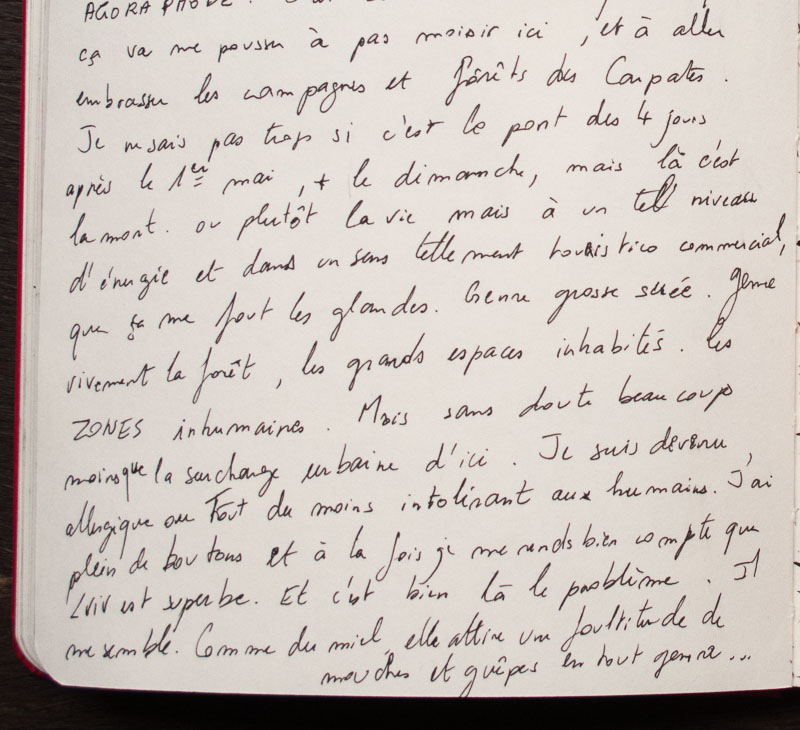 AGORAPHOBE.
ça va me pousser à pas moisir ici, et à aller
embrasser les campagnes et forêts des Carpates.
Je ne sais pas trop si c'est le pont des 4 jours
après le 1er mai, + le dimanche, mais là c'est
la mort. ou plutôt la vie mais à un tel niveau
d'énergie et dans un sens tellement touristico commercial,
que ça me fout les glandes. Genre grosse suée. J'aime
vivement la forêt, les grands espaces inhabités. Les
ZONES inhumaines. Mais sans doute beaucoup
moins que la surcharge urbaine d'ici. Je suis devenu,
allergique ou tout du moins intolérant aux humains. J'ai
plein de boutons et à la fois je me rends bien compte que
Lviv est superbe. Et c'est bien là le problème. Il
me semble. Comme du miel, elle attire une foultitude de
mouches et guêpes en tout genre...